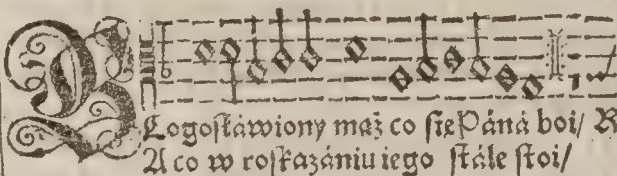 BLogosłáwiony mąż co się Páná boi/ R
A co w roskazániu iego stále stoi/